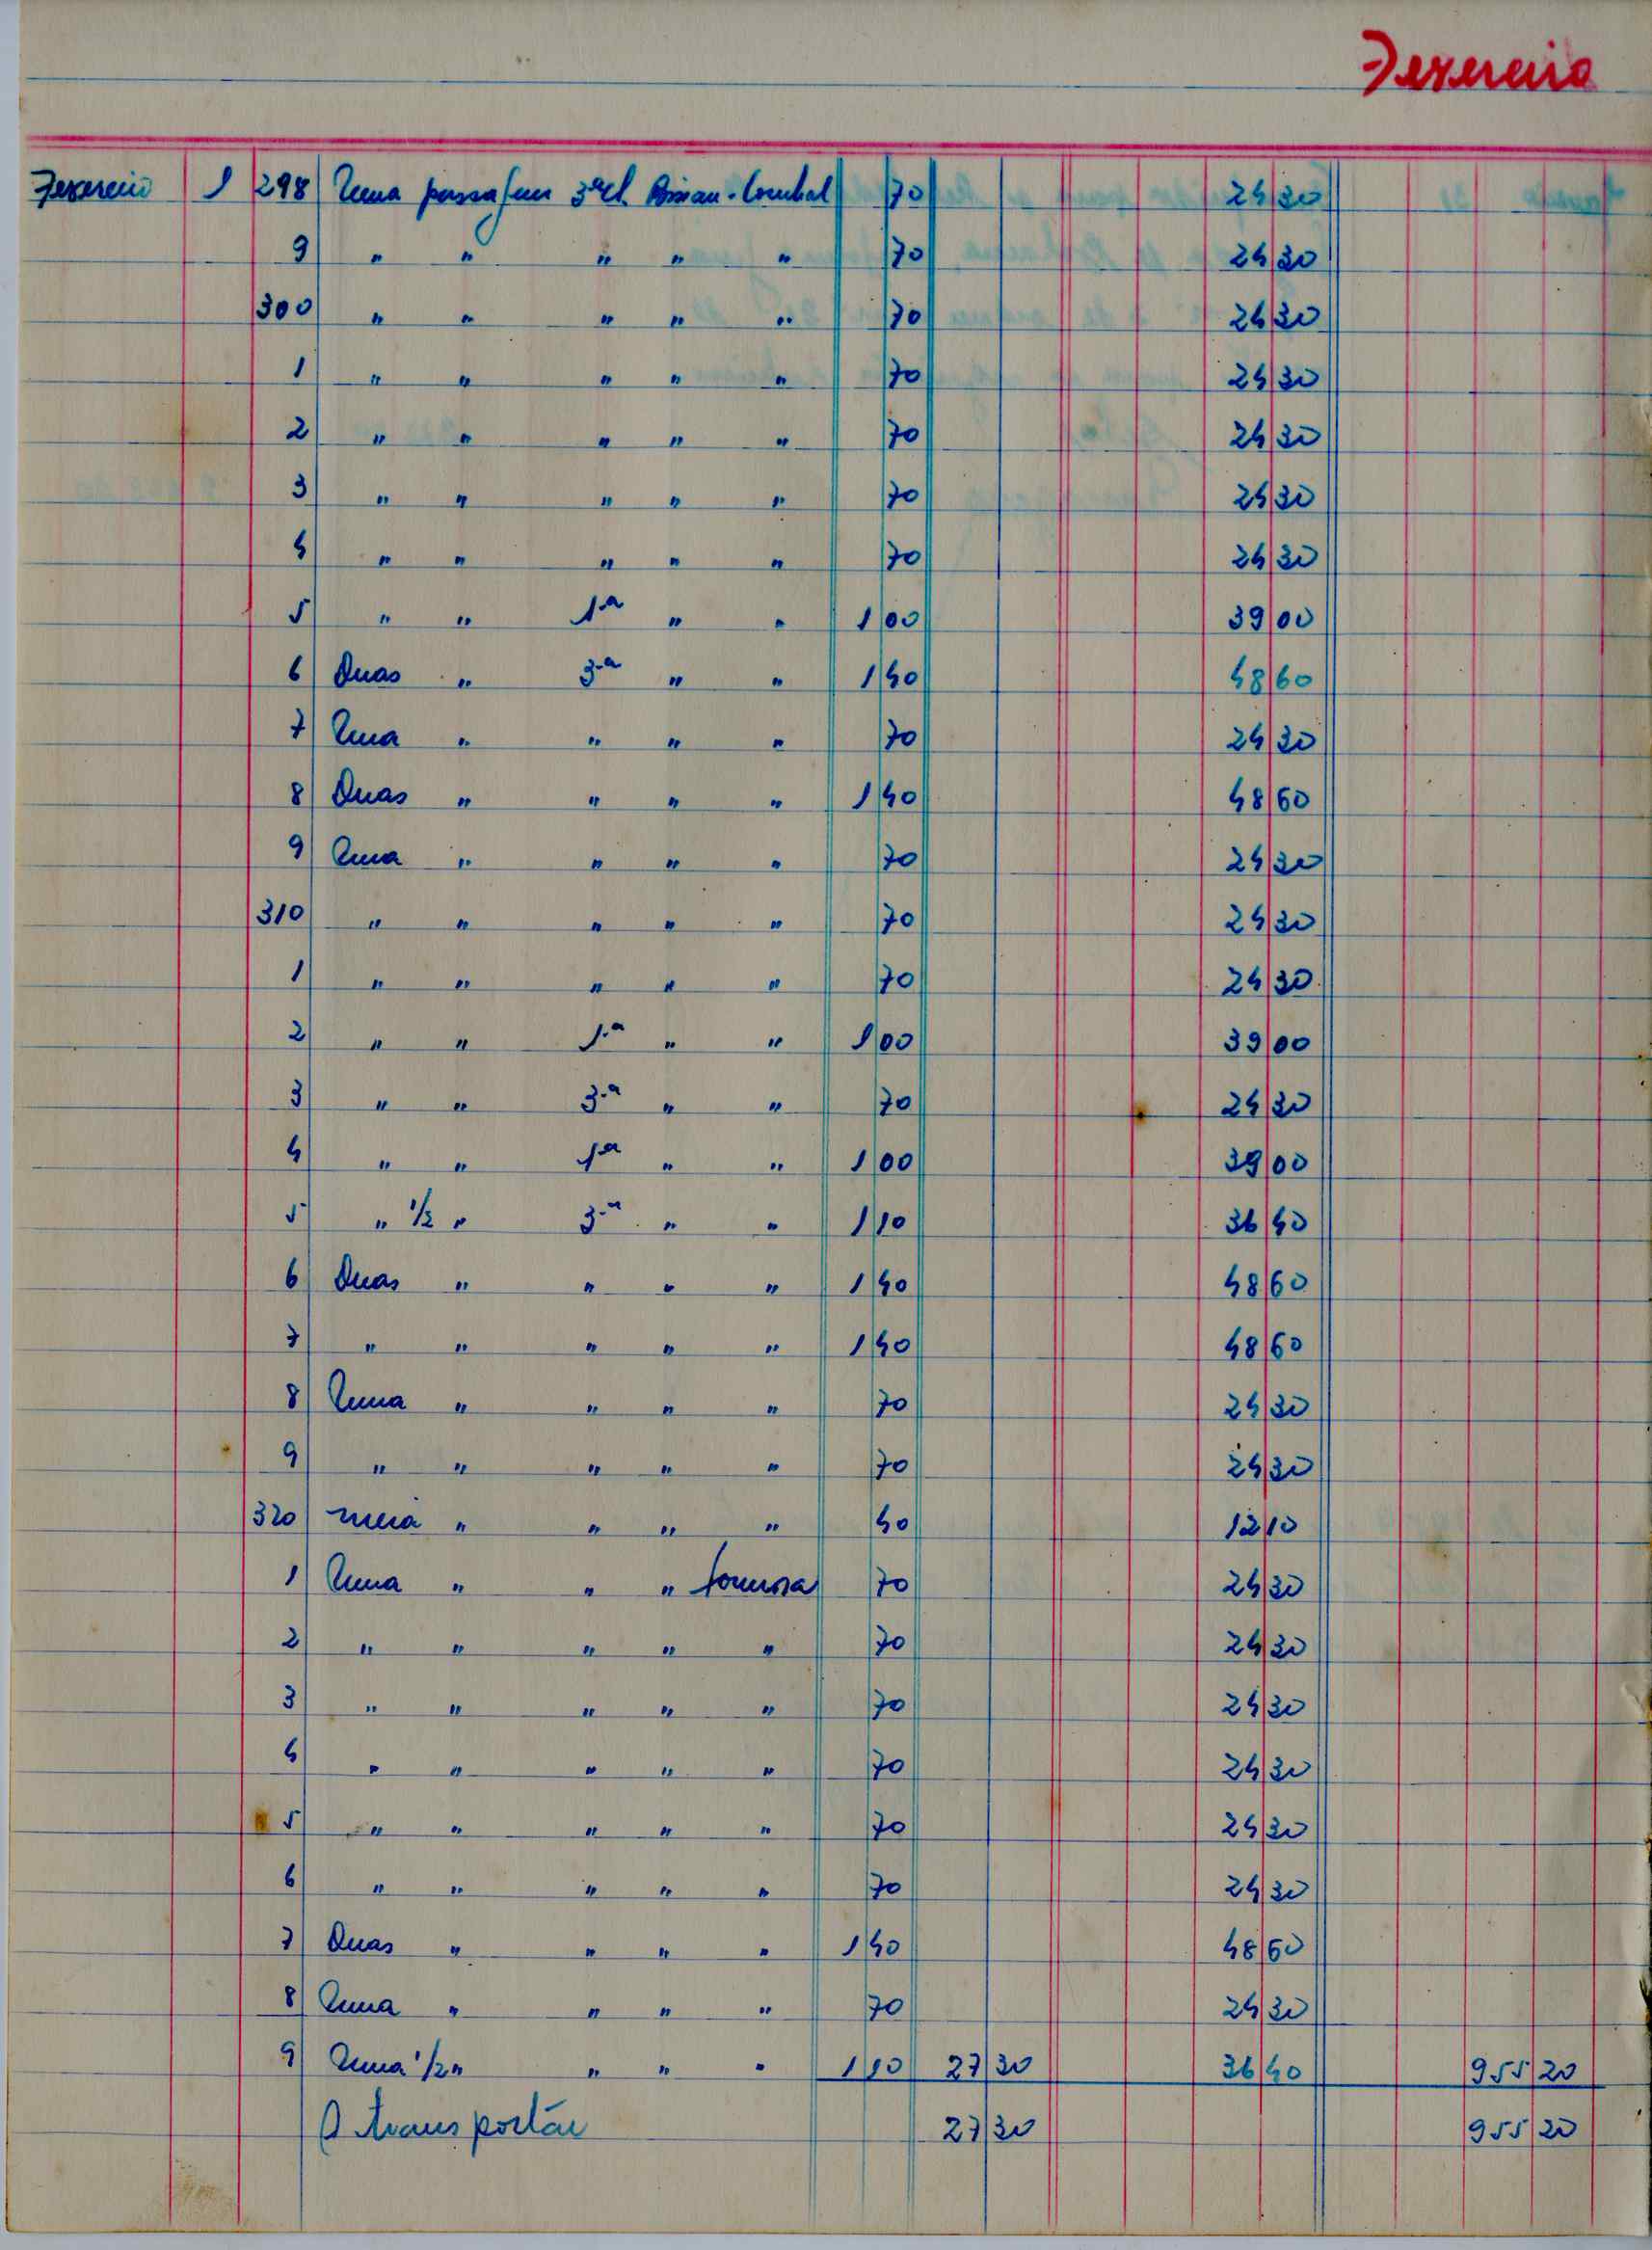 Fevereiro
Fevereiro 1 298 Uma passagem 3ª cl. Bissau-Cumbal 70 24 30
9 " " " " " 70 24 30
300 " " " " " 70 24 30
1 " " " " " 70 24 30
2 " " " " " 70 24 30
3 " " " " " 70 24 30
4 " " " " " 70 24 30
5 " " 1ª " " 1 00 39 00
6 Duas " 3ª " " 1 40 48 60
7 Uma " " " " 70 24 30
8 Duas " " " " 1 40 48 60
9 Uma " " " " 70 24 30
310 " " " " " 70 24 30
1 " " " " " 70 24 30
2 " " 1ª " " 1 00 39 00
3 " " 3ª " " 70 24 30
4 " " 1ª " " 1 00 39 00
5 " 1/2 " 3ª " " 1 10 36 40
6 Duas " " " " 1 40 48 60
7 " " " " " 1 40 48 60
8 Uma " " " " 70 24 30
9 " " " " " 70 24 30
320 meia " " " " 40 12 10
1 Uma " " " 70 24 30
2 " " " " " 70 24 30
3 " " " " " 70 24 30
4 " " " " " 70 24 30
5 " " " " " 70 24 30
6 " " " " " 70 24 30
7 Duas " " " " 1 40 48 60
8 Uma " " " " 70 24 30
9 Uma 1/2 " " " " 1 10 27 30 36 40 955 20
A transportar 27 30 955 20